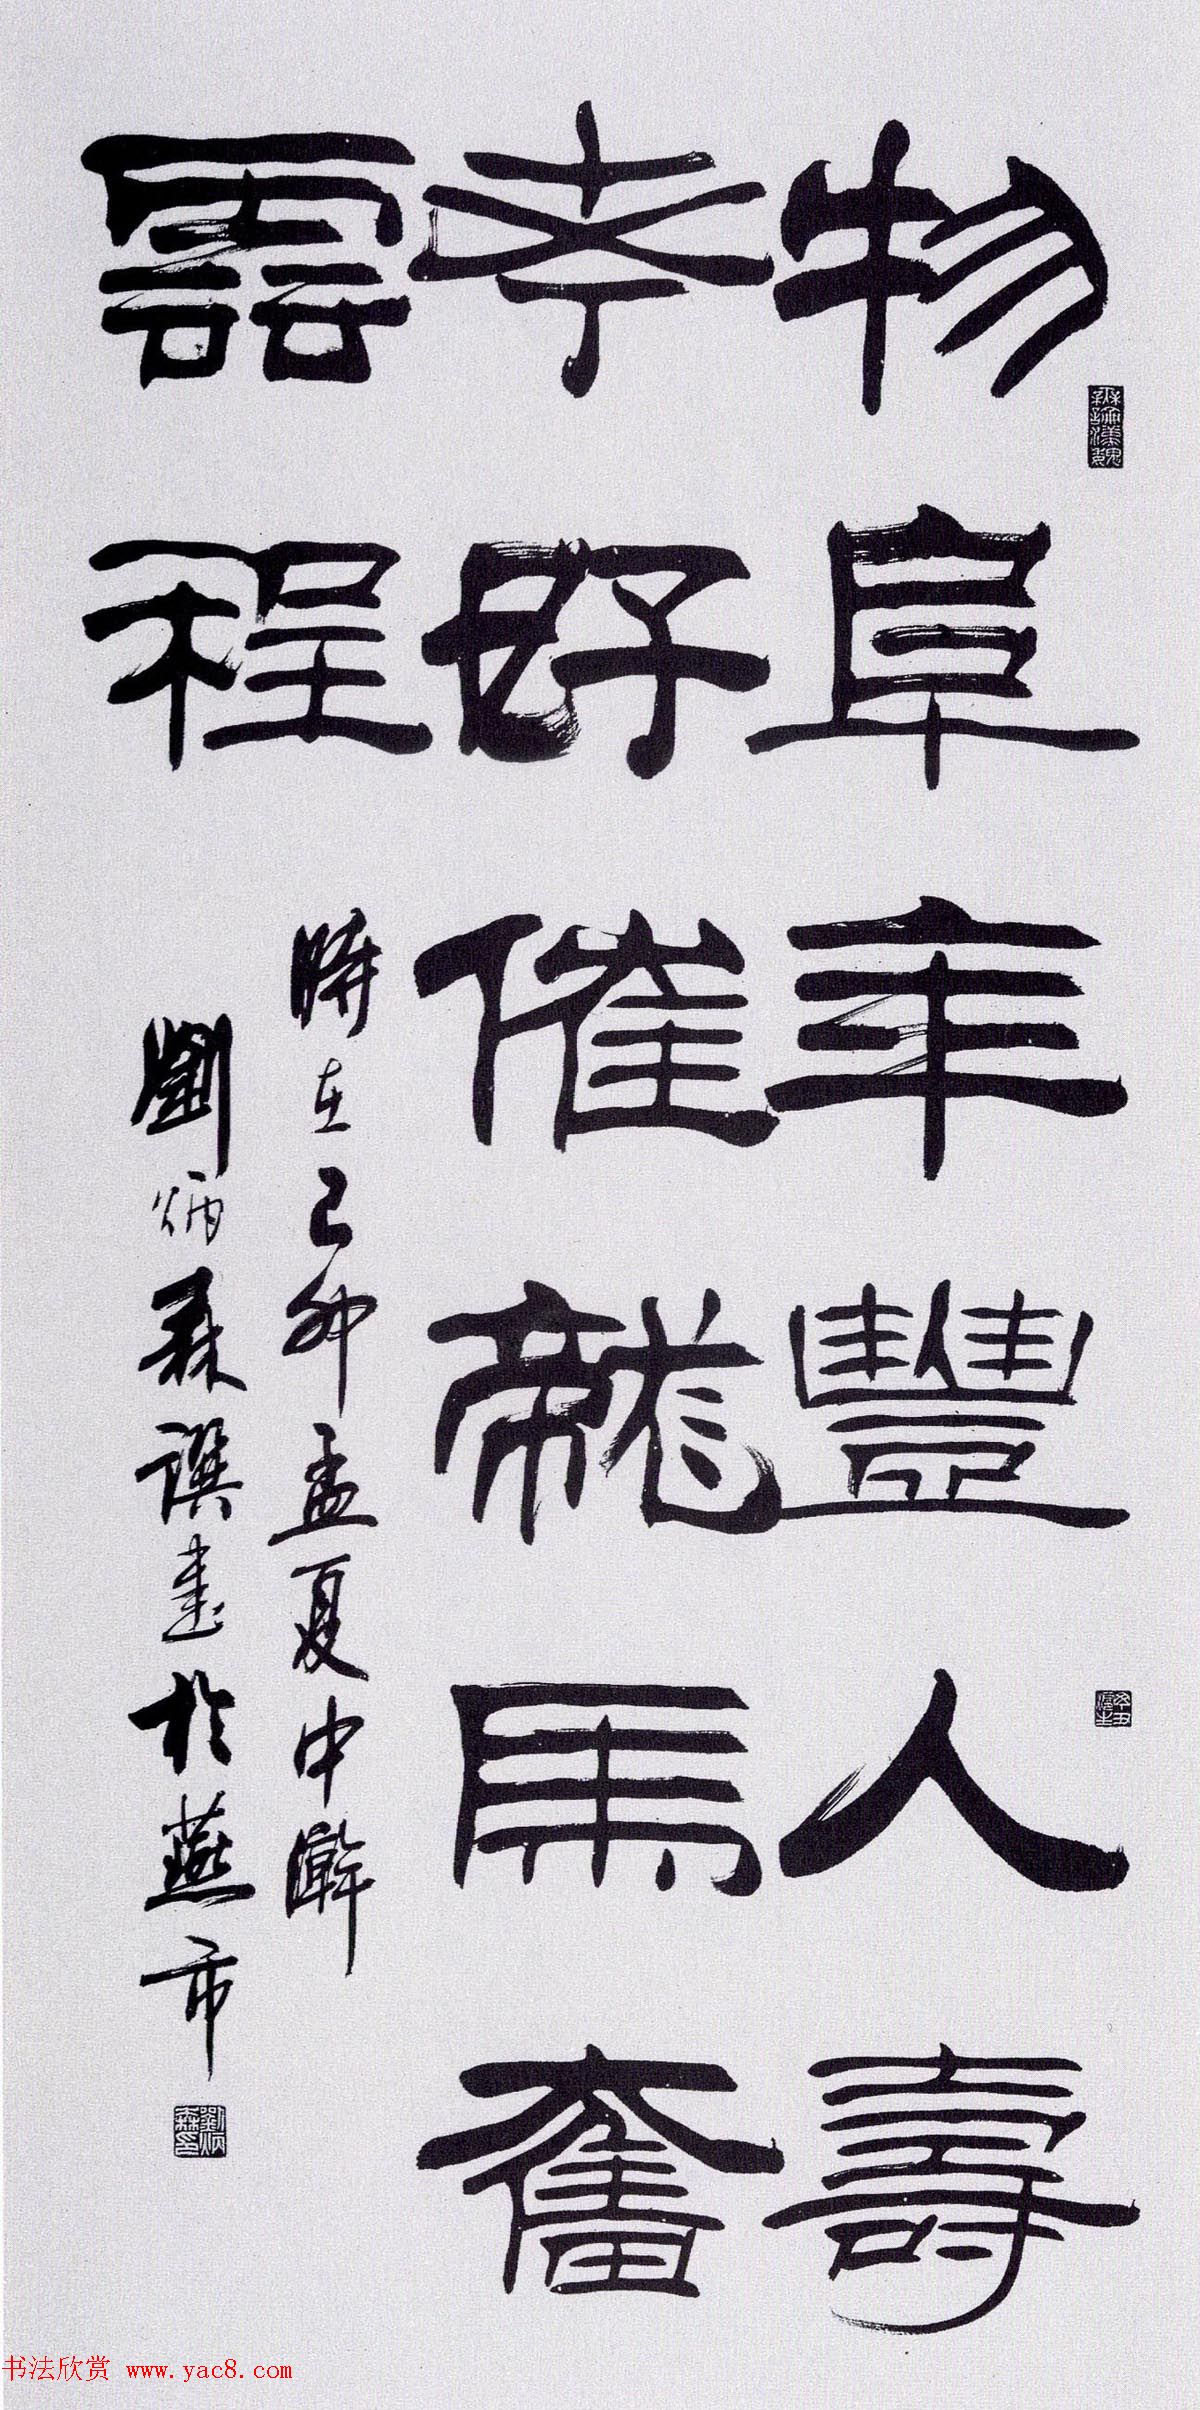 物阜年豐人壽
考好催龍馬奮
雲程
時在己卯孟夏中澣
劉炳森譔書於燕市
劉炳森印
书法欣赏 www.yac8.com